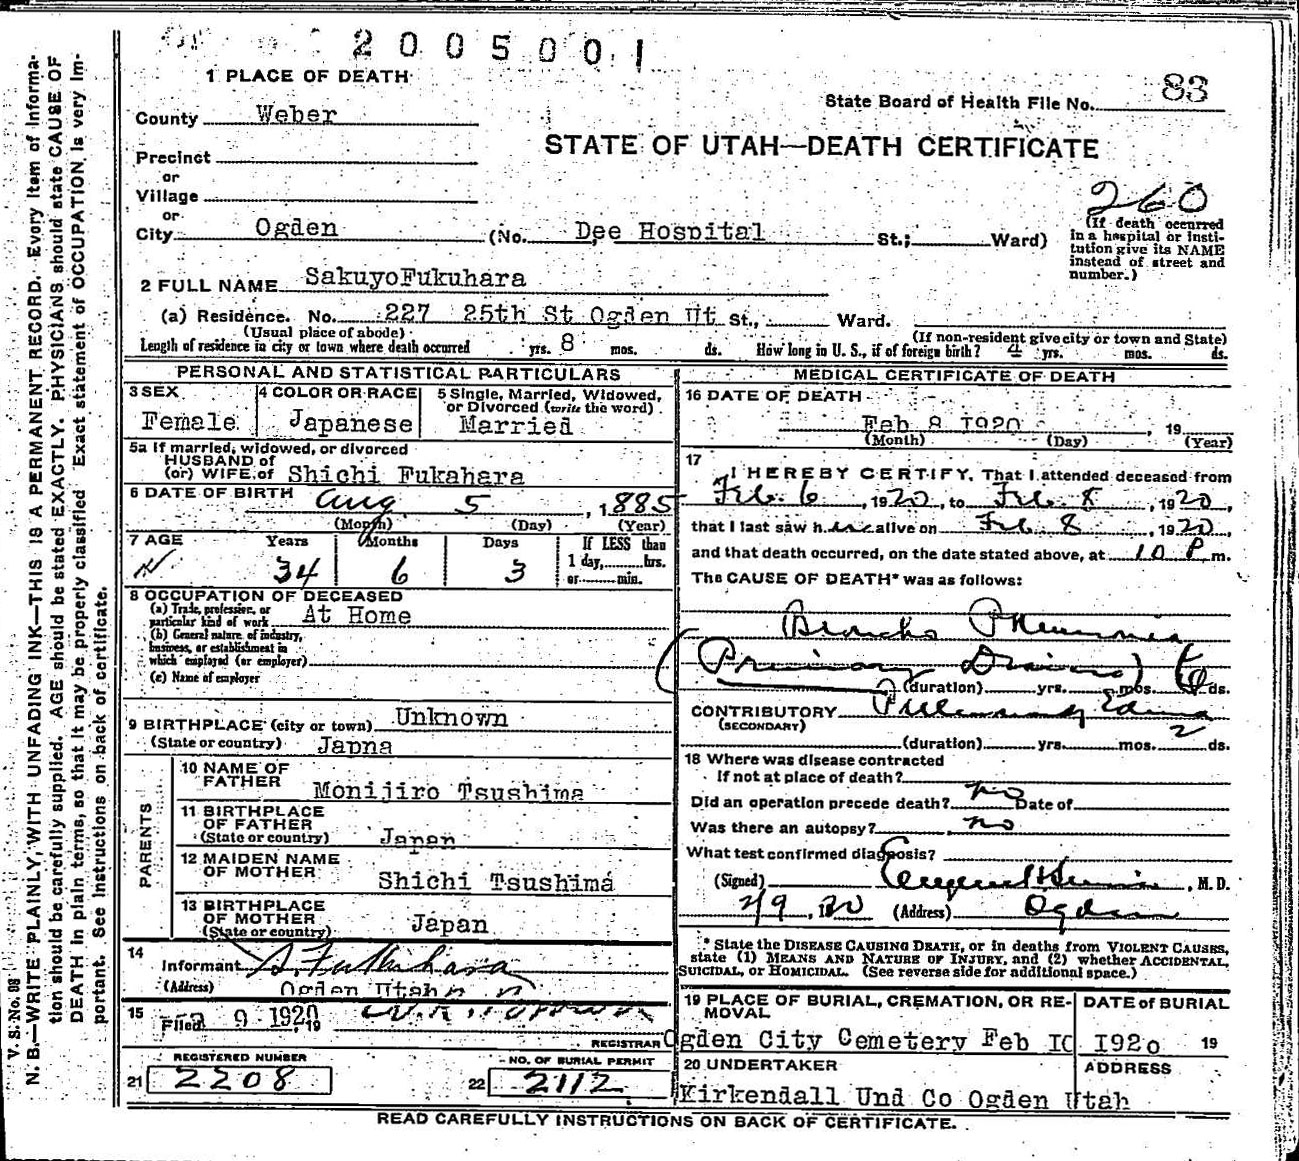 2005001
1 PLACE OF DEATH
83
State Board of Health File No.
County Weber
STATE OF UTAH—DEATH CERTIFICATE
Precinct
or
Village
260
or
City Ogden (No. Dee Hospital St.; Ward)
(If death occurred in a hospital or insti-tution give its NAME instead of street and number.)
2 FULL NAME SakuyoFukuhara
(a) Residence. No. 227 25th St Ogden Ut St., Ward.
(Usual place of abode) (If non-resident give city or town and State)
Length of residence in city or town where death occurred yrs. 8 mos. ds. How long in U. S., if of foreign birth? 4 yrs. mos. ds.
PERSONAL AND STATISTICAL PARTICULARS
3 SEX
Female
4 COLOR OR RACE
Japanese
5 Single, Married, Widowed, or Divorced (write the word)
Married
5a If married, widowed, or divorced
HUSBAND of
(or) WIFE of Shichi Fukahara
6 DATE OF BIRTH Aug 5, 1885
(Month) (Day) (Year)
7 AGE Years Months Days If LESS than
1 day, hrs.
or min.
34 6 3
8 OCCUPATION OF DECEASED
(a) Trade, profession, or
particular kind of work At Home
(b) General nature of industry,
business, or establishment in
which employed (or employer)
(c) Name of employer
9 BIRTHPLACE (city or town) Unknown
(State or country) Japna
PARENTS
10 NAME OF
FATHER Monijiro Tsushima
11 BIRTHPLACE
OF FATHER
(State or country) Japan
12 MAIDEN NAME
OF MOTHER Shichi Tsushima
13 BIRTHPLACE
OF MOTHER
(State or country) Japan
14
Informant S. Fukuhara
(Address) Ogden Utah
15 Filed 9 1920 19
REGISTRAR
REGISTERED NUMBER
21 2208
NO. OF BURIAL PERMIT
22 2112
MEDICAL CERTIFICATE OF DEATH
16 DATE OF DEATH
Feb 8 1920, 19
(Month) (Day) (Year)
17
I HEREBY CERTIFY, That I attended deceased from
Feb. 6, 1920, to Feb. 8, 1920,
that I last saw her alive on Feb. 8, 1920,
and that death occurred, on the date stated above, at 10 P m.
The CAUSE OF DEATH* was as follows:
Broncho Pneumonia
(Primary
(duration) yrs. mos. ds.
CONTRIBUTORY Pulmonary Edema
(SECONDARY)
(duration) yrs. mos. 2 ds.
18 Where was disease contracted
If not at place of death?
Did an operation precede death? no Date of
Was there an autopsy? no
What test confirmed diagnosis?
(Signed) , M. D.
2/9, 1920 (Address) Ogden
* State the DISEASE CAUSING DEATH, or in deaths from VIOLENT CAUSES,
state (1) MEANS AND NATURE OF INJURY, and (2) whether ACCIDENTAL,
SUICIDAL, or HOMICIDAL. (See reverse side for additional space.)
19 PLACE OF BURIAL, CREMATION, OR RE-
MOVAL
DATE of BURIAL
Ogden City Cemetery Feb 10 1920 19
20 UNDERTAKER
ADDRESS
Kirkendall Und Co Ogden Utah
READ CAREFULLY INSTRUCTIONS ON BACK OF CERTIFICATE.
V. S. No. 08
N. B.—WRITE PLAINLY, WITH UNFADING INK—THIS IS A PERMANENT RECORD. Every item of informa-
tion should be carefully supplied. AGE should be stated EXACTLY. PHYSICIANS should state CAUSE OF
DEATH in plain terms, so that it may be properly classified. Exact statement of OCCUPATION is very im-
portant. See instructions on back of certificate.